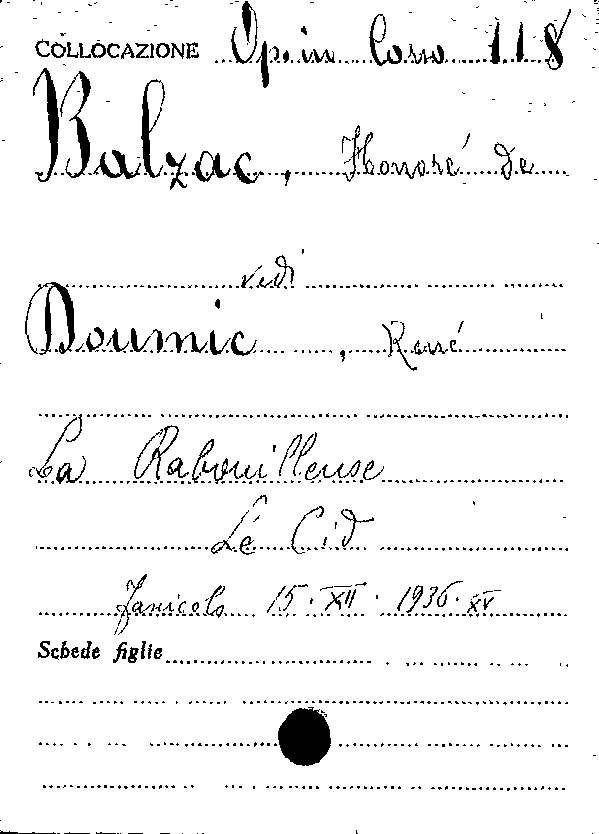 COLLOCAZIONE Op. in Corso 118
Balzac, Honoré de
vedi
Doumic, René
La Rabouilleuse
Le Cid
15. XII. 1936. XV
Schede figlie